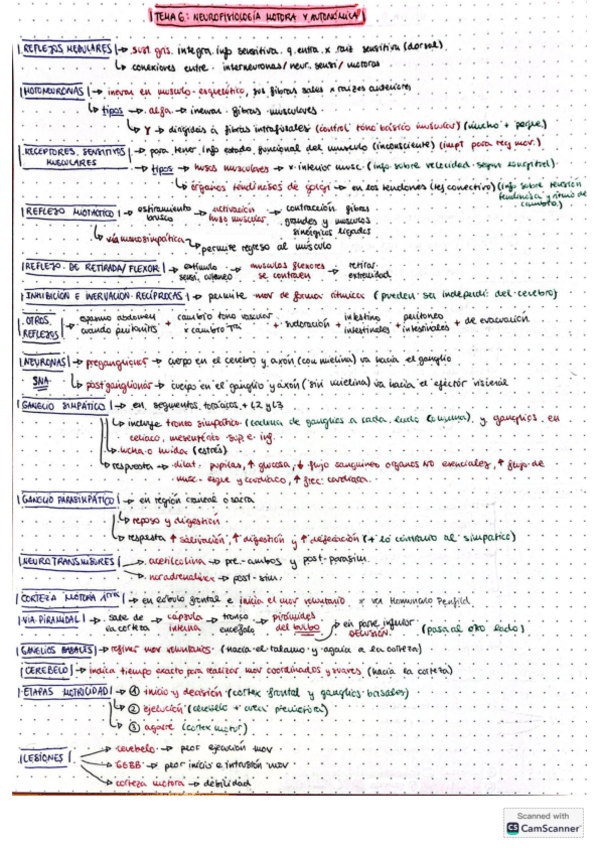 TEMA 6: NEUROFISIOLOGÍA MOTORA Y AUTONÓMICA
REFLEJOS MEDULARES → sust. gris. integra info sensitiva q. entra x raiz sensitiva (dorsal)
↳ conexiones entre interneuronas/neur. sensi/ motoras
MOTONEURONAS → inervan en musculo esquelético, sus fibras salen x raices anteriores
↳ tipos → alfa → inervan fibras musculares
↳ γ → dirigidas a fibras intrafusales (control tono básico muscular) (mucho + peque)
RECEPTORES SENSITIVOS MUSCULARES → para tener info estado funcional del musculo (inconsciente) (impt para reg mov.)
↳ tipos → husos musculares → x interior musc. (info sobre velocidad segun longitud)
↳ órganos tendinosos de golgi → en los tendones (tej conectivo) (info sobre tensión tendinosa y ritmo de cambio)
REFLEJO MIOTÁTICO → estiramiento brusco → activación huso muscular → contracción fibras grandes y musculos sinérgicos ligados
↳ via monosinaptica → permite regreso al músculo
REFLEJO DE RETIRADA/FLEXOR → estimulo sensi. cutaneo → musculos flexores se contraen → retirar extremidad
INHIBICIÓN E INERVACIÓN RECÍPROCAS → permite mov de forma rítmica (pueden ser independi. del cerebro)
OTROS REFLEJOS → espasmo abdomen cuando peritonitis + cambio tono vascular x cambio Tª + sudoración + intestino intestinales + peritoneo intestinales + de evacuación
NEURONAS SNA → preganglionar → cuerpo en el cerebro y axón (con mielina) va hacia el ganglio
↳ postganglionar → cuerpo en el ganglio y axón (sin mielina) va hacia el efector visceral
GANGLIO SIMPÁTICO → en segmentos torácicos + L2 y L3
↳ incluye tronco simpático (cadena de ganglios a cada lado columna) y ganglios en celiaco, mesentérico sup e inf.
↳ lucha o huida (estrés)
↳ respuesta → dilat. pupilas, ↑ glucosa, ↓ flujo sanguíneo organos NO esenciales, ↑ flujo de musc. esque y cardíaco, ↑ frec. cardíaca.
GANGLIO PARASIMPÁTICO → en región craneal o sacra
↳ reposo y digestión
↳ respuesta ↑ salivación, ↑ digestión y ↑ defecación (+ lo contrario al simpatico)
NEUROTRANSMISORES → acetilcolina → pre-ambos y post-parasim.
↳ noradrenalina → post-sim.
CORTEZA MOTORA 1ria → en lóbulo frontal e inicia el mov voluntario * ver Homunculo Penfield
VIA PIRAMIDAL → sale de la corteza → cápsula interna → tronco encefalo → pirámides del bulbo → en parte inferior DECUSAN (pasa al otro lado)
GANGLIOS BASALES → refinar mov voluntarios (hacia el talamo y aguia a la corteza)
CEREBELO → indica tiempo exacto para realizar mov coordinados y suaves (hacia la corteza)
ETAPAS MOTRICIDAD → ① inicio y decisión (cortex frontal y ganglios basales)
↳ ② ejecución (cerebelo + area premotora)
↳ ③ agarre (cortex motor)
LESIONES → cerebelo → peor ejecución mov
→ GGBB → peor inicio e intrusión mov
→ corteza motora → debilidad
Scanned with
CS CamScanner